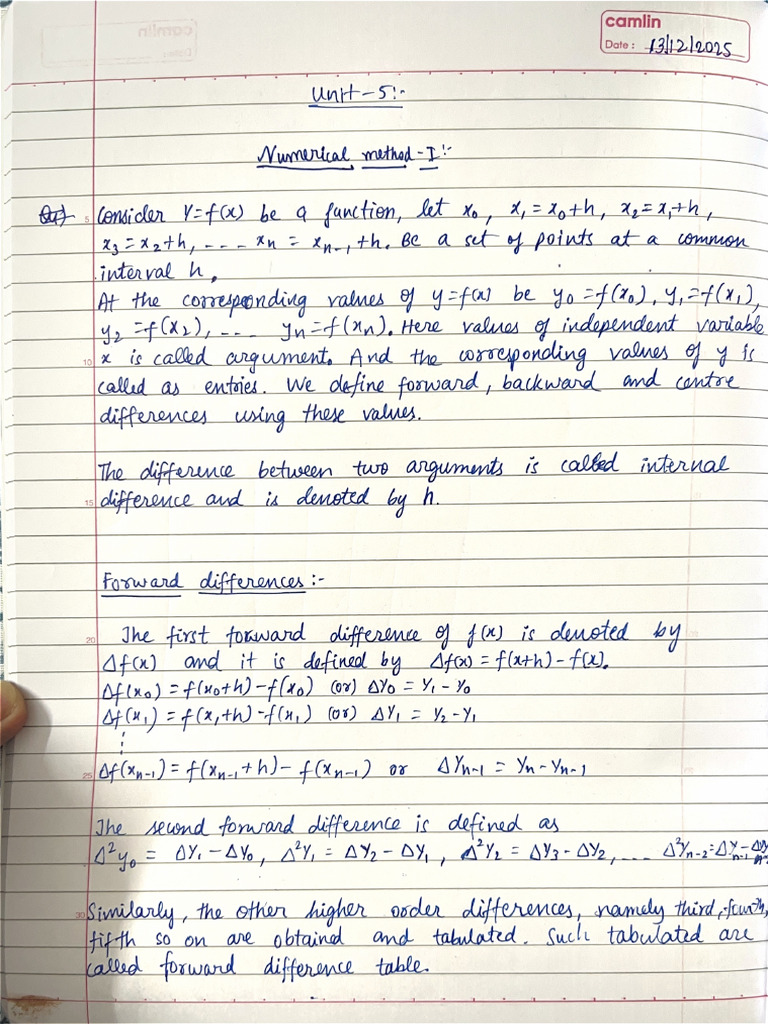 camlin
Date : 13/12/2025
Unit-5:-
Numerical method-I:-
5 Consider Y=f(x) be a function, let x₀, x₁=x₀+h, x₂=x₁+h,
x₃=x₂+h, ---- xₙ = xₙ₋₁+h. Be a set of points at a common
interval h.
At the corresponding values of y=f(x) be y₀=f(x₀), y₁=f(x₁),
y₂=f(x₂), --- yₙ=f(xₙ). Here values of independent variable
10 x is called argument. And the corresponding values of y is
called as entries. We define forward, backward and centre
differences using these values.
The difference between two arguments is called internal
15 difference and is denoted by h.
Forward differences:-
20 The first forward difference of f(x) is denoted by
Δf(x) and it is defined by Δf(x) = f(x+h) - f(x).
Δf(x₀) = f(x₀+h) - f(x₀) (or) ΔY₀ = Y₁ - Y₀
Δf(x₁) = f(x₁+h) - f(x₁) (or) ΔY₁ = Y₂ - Y₁
25 Δf(xₙ₋₁) = f(xₙ₋₁+h) - f(xₙ₋₁) or ΔYₙ₋₁ = Yₙ - Yₙ₋₁
The second forward difference is defined as
Δ²y₀ = ΔY₁ - ΔY₀, Δ²Y₁ = ΔY₂ - ΔY₁, Δ²Y₂ = ΔY₃ - ΔY₂, ---- Δ²Yₙ₋₂ = ΔYₙ₋₁ -
30 Similarly, the other higher order differences, namely third, fourth,
fifth so on are obtained and tabulated. Such tabulated are
called forward difference table.